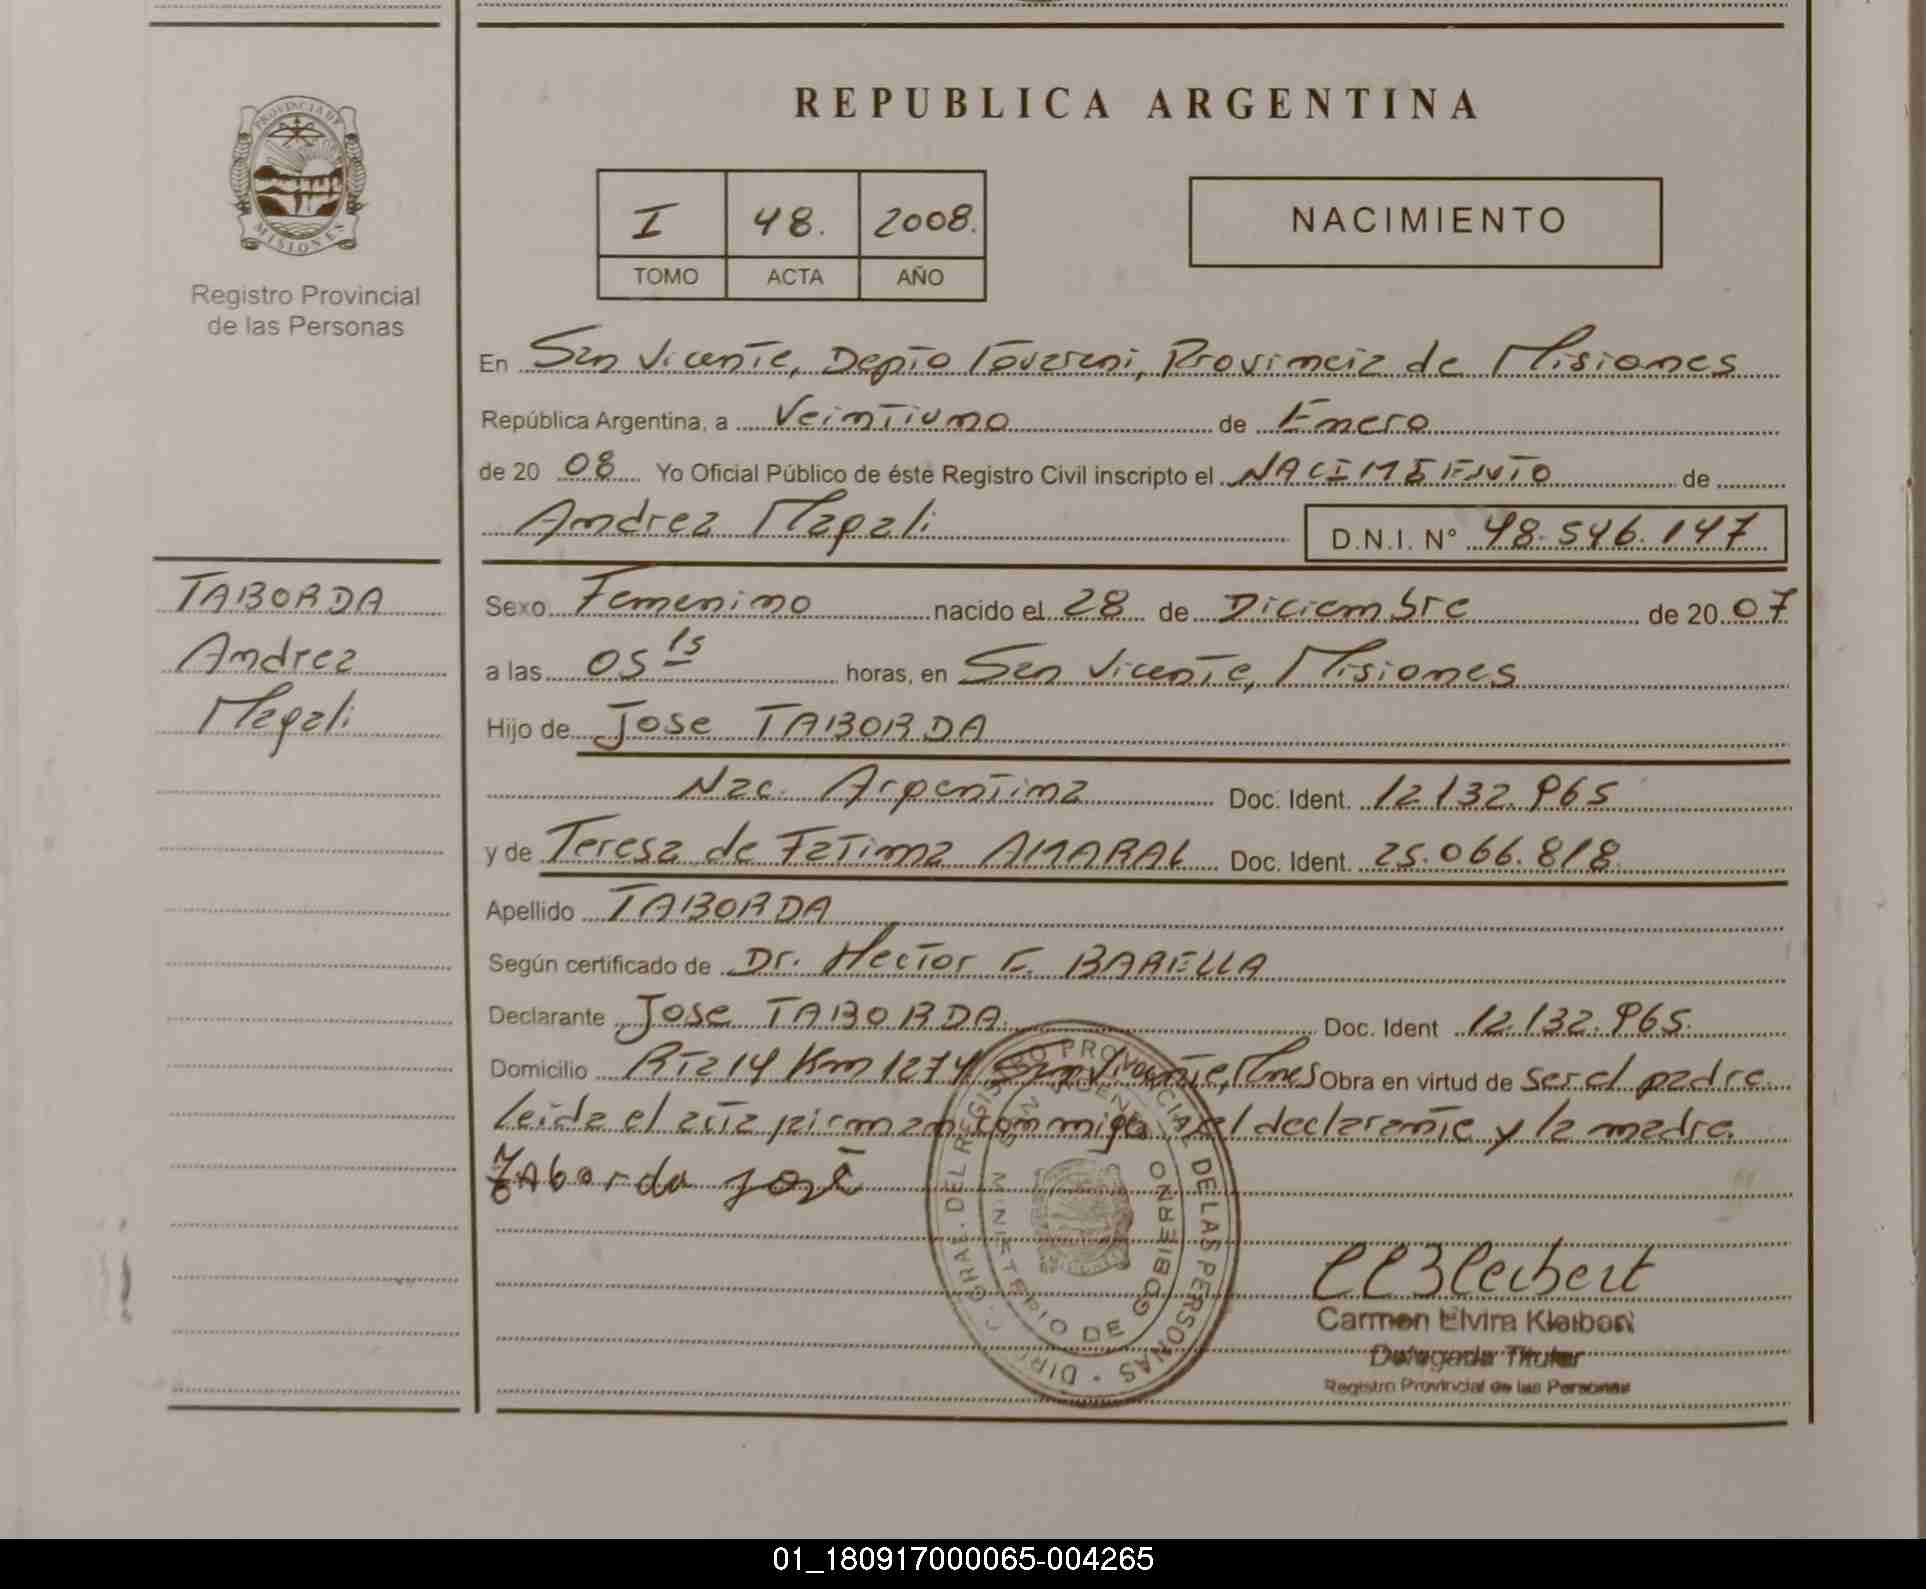 REPUBLICA ARGENTINA
PROVINCIA DE
MISIONES
Registro Provincial
de las Personas
I 48. 2008.
TOMO ACTA AÑO
NACIMIENTO
En San Vicente, Depto Guarani, Provincia de Misiones
República Argentina, a Veintiuno de Enero
de 20 08 Yo Oficial Público de éste Registro Civil inscripto el NACIMIENTO de
Andrea Magali D.N.I. N° 48.546.147
TABORDA
Andrea
Magali
Sexo Femenino nacido el 28 de Diciembre de 20 07
a las 05 15 horas, en San Vicente, Misiones
Hijo de Jose TABORDA
Nac. Argentina Doc. Ident. 12.132.965
y de Teresa de Fatima AMARAL Doc. Ident. 25.066.818
Apellido TABORDA
Según certificado de Dr. Hector F. BARELLA
Declarante Jose TABORDA. Doc. Ident 12.132.965.
Domicilio Rta 14 Km 1274 San Vicente, Mnes Obra en virtud de ser el padre
Leida el acta firman conmigo el declarante y la madre
Taborda José
DIREC. GRAL. DEL REGISTRO PROVINCIAL DE LAS PERSONAS
MINISTERIO DE GOBIERNO
Carmen Elvira Kleibert
Delegada Titular
Registro Provincial de las Personas
01_180917000065-004265